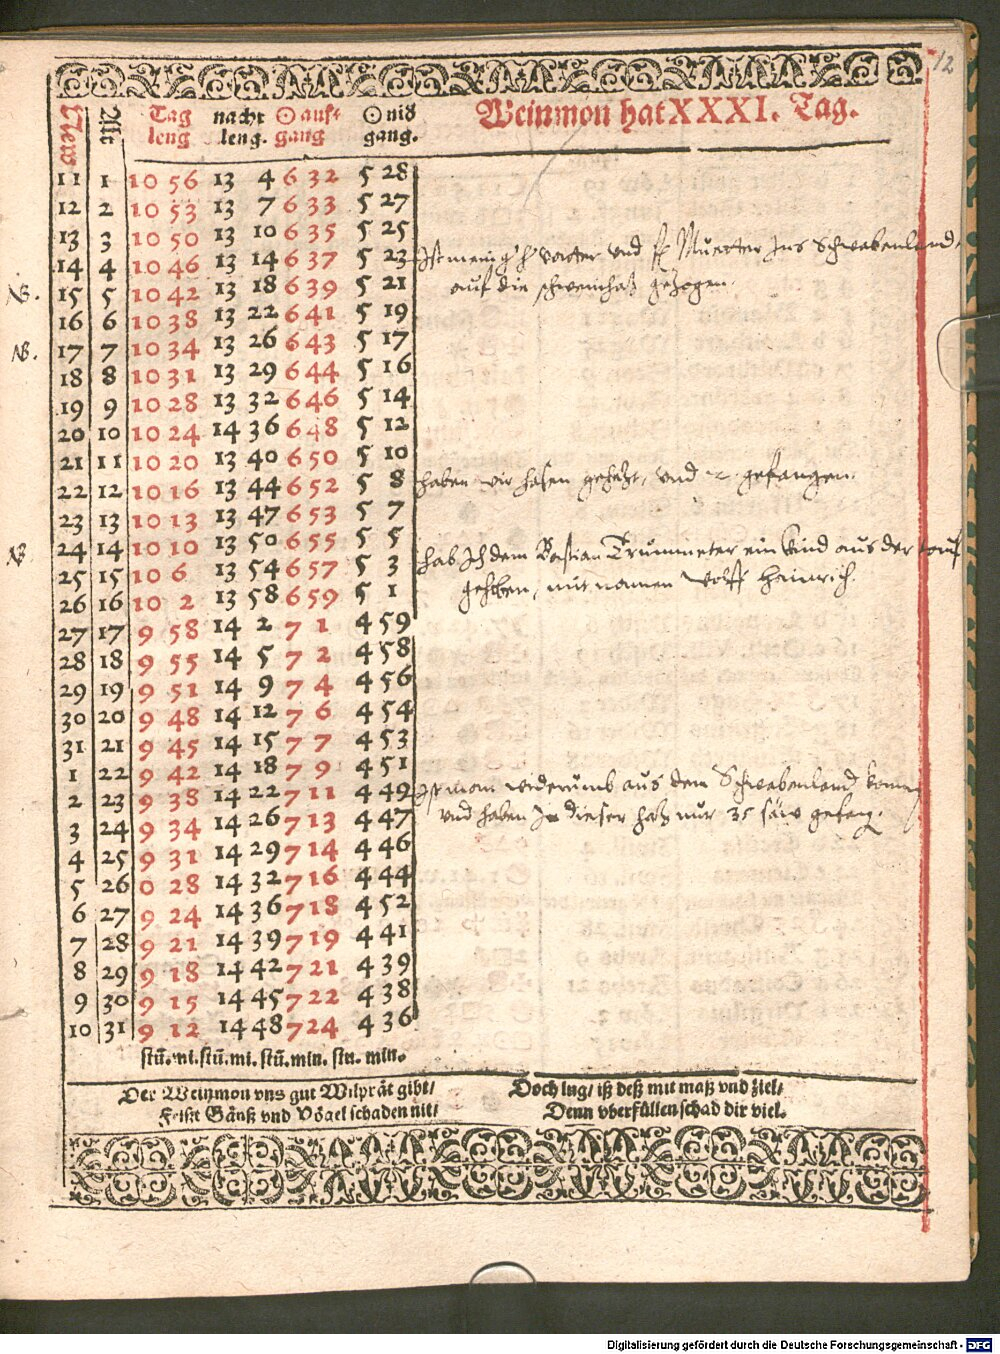 12
Weinmon hat XXXI. Tag.
New Alt Tag leng nacht leng. ☉ auff- gang ☉ nid gang.
11 1 10 56 13 4 6 32 5 28
12 2 10 53 13 7 6 33 5 27
13 3 10 50 13 10 6 35 5 25
14 4 10 46 13 14 6 37 5 23 Ist mein g h vatter und f Muetter Ins Schwabenland
NB. 15 5 10 42 13 18 6 39 5 21 auf die schweinhatz gezogen.
16 6 10 38 13 22 6 41 5 19
NB. 17 7 10 34 13 26 6 43 5 17
18 8 10 31 13 29 6 44 5 16
19 9 10 28 13 32 6 46 5 14
20 10 10 24 14 36 6 48 5 12
21 11 10 20 13 40 6 50 5 10
22 12 10 16 13 44 6 52 5 8 haben wir hasen gehetzt, und 2. gefangen.
23 13 10 13 13 47 6 53 5 7
NB 24 14 10 10 13 50 6 55 5 5 hab Ich dem Bastian Trummeter ein Kind aus der tauf
25 15 10 6 13 54 6 57 5 3 gehoben, mit namen Wolff Hainrich.
26 16 10 2 13 58 6 59 5 1
27 17 9 58 14 2 7 1 4 59
28 18 9 55 14 5 7 2 4 58
29 19 9 51 14 9 7 4 4 56
30 20 9 48 14 12 7 6 4 54
31 21 9 45 14 15 7 7 4 53
1 22 9 42 14 18 7 9 4 51
2 23 9 38 14 22 7 11 4 49 Ist man widerumb aus dem Schwabenland
3 24 9 34 14 26 7 13 4 47 und haben In dieser hatz nur 35 säw gefang.
4 25 9 31 14 29 7 14 4 46
5 26 0 28 14 32 7 16 4 44
6 27 9 24 14 36 7 18 4 52
7 28 9 21 14 39 7 19 4 41
8 29 9 18 14 42 7 21 4 39
9 30 9 15 14 45 7 22 4 38
10 31 9 12 14 48 7 24 4 36
stū. mi. stū. mi. stū. min. stu. min.
Der Weinmon vns gut Wilprät gibt/
Feißt Gänß vnd Vögel schaden nit/
Doch lug/ iß deß mit maß vnd ziel/
Denn vberfüllen schad dir viel.
Digitalisierung gefördert durch die Deutsche Forschungsgemeinschaft - DFG